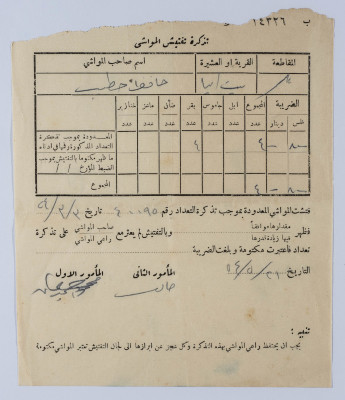 ب ١٤٣٢٦
تذكرة تفتيش المواشي
المقاطعة القرية او العشيرة اسم صاحب المواشي
الضريبة المجموع ابل جاموس بقر ضأن ماعز خنازير
فلس دينار عدد عدد عدد عدد عدد عدد عدد
المعدودة بموجب تذكرة التعداد المذكورة رقمها في ادناه ٨٠٠ ٤ ٤
ما ظهر مكتوما بالتفتيش بموجب الضبط المؤرخ / /
المجموع ٨٠٠ ٤
فتشت المواشي المعدودة بموجب تذكرة التعداد رقم ٤٠٠٩٥ تاريخ
فظهر مقدارها موافقاً
فيها زيادة قدرها
وبالتفتيش لم يعثر مع صاحب المواشي
راعي المواشي
على تذكرة
تعداد فاعتبرت مكتومة وبلغت الضريبة
التاريخ
المأمور الثاني المأمور الاول
تنبيه :
يجب ان يحتفظ راعي المواشي بهذه التذكرة وكل عجز عن ابرازها الى لجان التفتيش تعتبر المواشي مكتومة